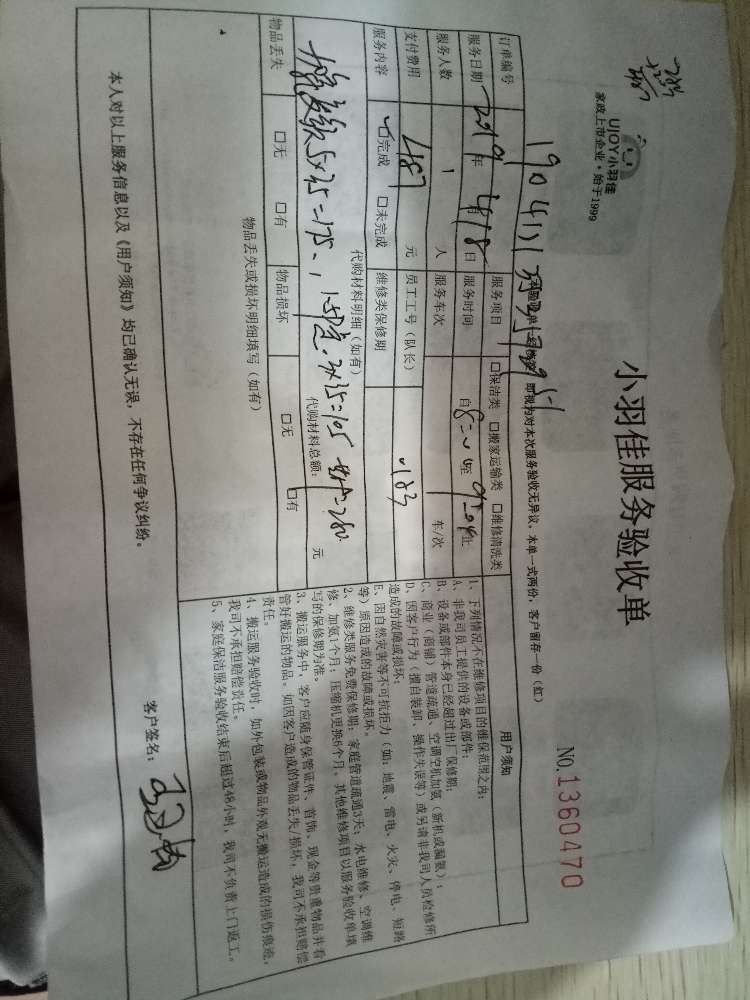 小羽佳服务验收单
UJOY小羽佳
家政上市企业·始于1999
NO.1360470
验收单一经签字，即视为对本次服务验收无异议。本单一式两份，客户留存一份（红）
订单编号
服务项目 口保洁类 口搬家运输类 口维修清洗类
服务日期 2019年4月18日 服务时间 自8=00至 止
服务人数 1 人 服务车次 车/次
支付费用 487 元 员工工号（队长） 183
服务内容 口完成 口未完成 维修类保修期
代购材料明细（如有）
5×35=175、 3×35=105 =280
代购材料总额： 元
物品丢失 口无 口有 物品损坏 口无 口有
物品丢失或损坏明细填写（如有）
用户须知
1、下列情况不在维修项目的维保范围之内：
A、非我司员工提供的设备或部件；
B、设备或部件本身已经超过出厂保修期；
C、商业（商铺）管道疏通、空调空机加氨（新机或漏氨）；
D、因客户行为（擅自装卸、操作失误等）或另请非我司人员检修所
造成的故障或损坏；
E、因自然灾害等不可抗拒力（如：地震、雷电、火灾、停电、短路
等）原因造成的故障或损坏。
2、维修类服务免费保修期：家庭管道疏通3天；水电维修、空调维
修、加氨1个月；压缩机更换6个月。其他维修项目以服务验收单填
写的保修期为准。
3、搬运服务中，客户应随身保管证件、首饰、现金等贵重物品并看
管好搬运的物品。如因客户造成的物品丢失/损坏，我司不承担赔偿
责任。
4、搬运服务验收时，如外包装或物品外观无搬运造成的损伤痕迹，
我司不承担赔偿责任。
5、家庭保洁服务验收结束后超过48小时，我司不负责上门返工。
本人对以上服务信息以及《用户须知》均已确认无误，不存在任何争议纠纷。
客户签名：